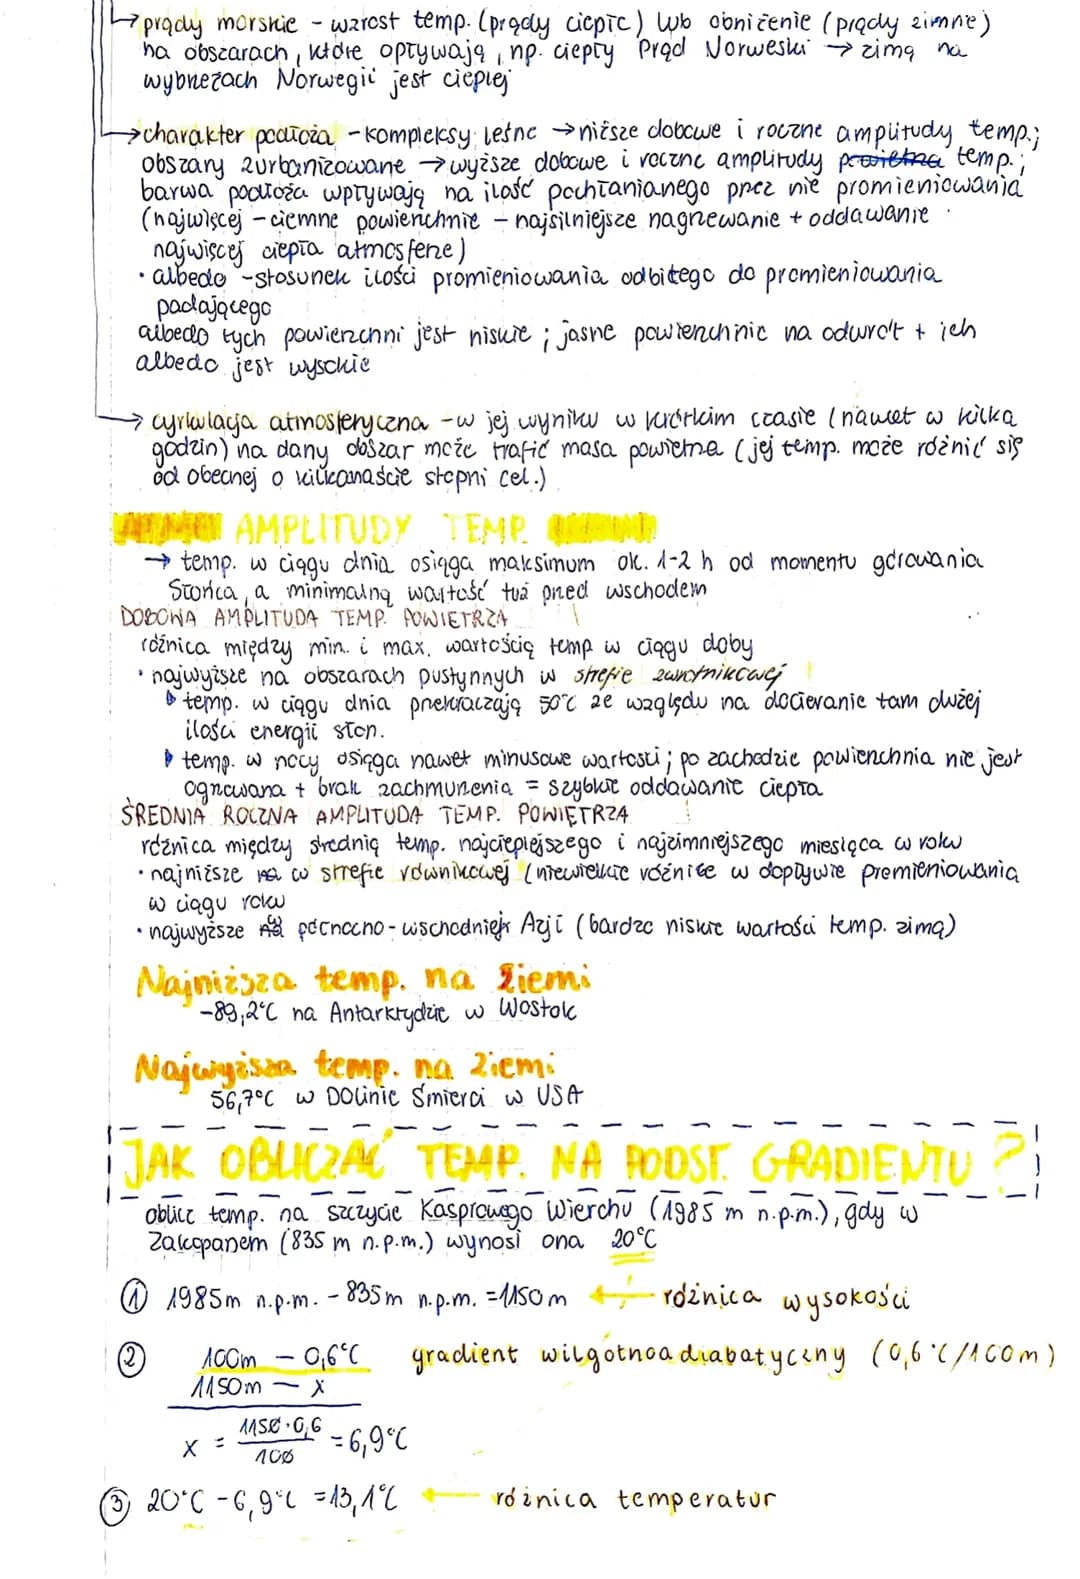 →prądy morskie - wzrost temp. (prądy ciepłe) lub obniżenie (prądy zimne)
na obszarach, które opływają, np. ciepły Prąd Norweski → zimą na
wybrzeżach Norwegii jest cieplej
→charakter podłoża - kompleksy leśne → niższe dobowe i roczne amplitudy temp.;
obszary zurbanizowane → wyższe dobowe i roczne amplitudy temp.;
barwa podłoża wpływają na ilość pochłanianego przez nie promieniowania
(najwięcej - ciemne powierzchnie - najsilniejsze nagrzewanie + oddawanie
najwięcej ciepła atmosferze)
• albedo - stosunek ilości promieniowania odbitego do promieniowania
padającego
albedo tych powierzchni jest niskie ; jasne powierzchnie na odwrót + ich
albedo jest wysokie
→ cyrkulacja atmosferyczna - w jej wyniku w krótkim czasie (nawet w kilka
godzin) na dany obszar może trafić masa powietrza (jej temp. może różnić się
od obecnej o kilkanaście stopni cel.)
AMPLITUDY TEMP.
→ temp. w ciągu dnia osiąga maksimum ok. 1-2 h od momentu górowania
Słońca, a minimalną wartość tuż przed wschodem
DOBOWA AMPLITUDA TEMP. POWIETRZA
różnica między min. i max. wartością temp w ciągu doby
• najwyższe na obszarach pustynnych w strefie zwrotnikowej
▶ temp. w ciągu dnia przekraczają 50°C ze względu na docieranie tam dużej
ilości energii słon.
▶ temp. w nocy osiąga nawet minusowe wartości; po zachodzie powierzchnia nie jest
ogrzewana + brak zachmurzenia = szybkie oddawanie ciepła
ŚREDNIA ROCZNA AMPLITUDA TEMP. POWIETRZA
różnica między średnią temp. najcieplejszego i najzimniejszego miesiąca w roku
• najniższe w strefie równikowej (niewielkie różnice w dopływie promieniowania
w ciągu roku
• najwyższe północno-wschodniej Azji (bardzo niskie wartości temp. zimą)
Najniższa temp. na Ziemi
-89,2°C na Antarktydzie w Wostok
Najwyższa temp. na Ziemi
56,7°C w Dolinie Śmierci w USA
JAK OBLICZAĆ TEMP. NA PODST. GRADIENTU ?
oblicz temp. na szczycie Kasprowego Wierchu (1985 m n.p.m.), gdy w
Zakopanem (835 m n.p.m.) wynosi ona 20°C
① 1985m n.p.m. - 835m n.p.m. = 1150m ← różnica wysokości
② 100m - 0,6°C gradient wilgotnoadiabatyczny (0,6°C/100m)
1150m - x
x = 1150·0,6/100 = 6,9°C
③ 20°C - 6,9°C = 13,1°C ← różnica temperatur